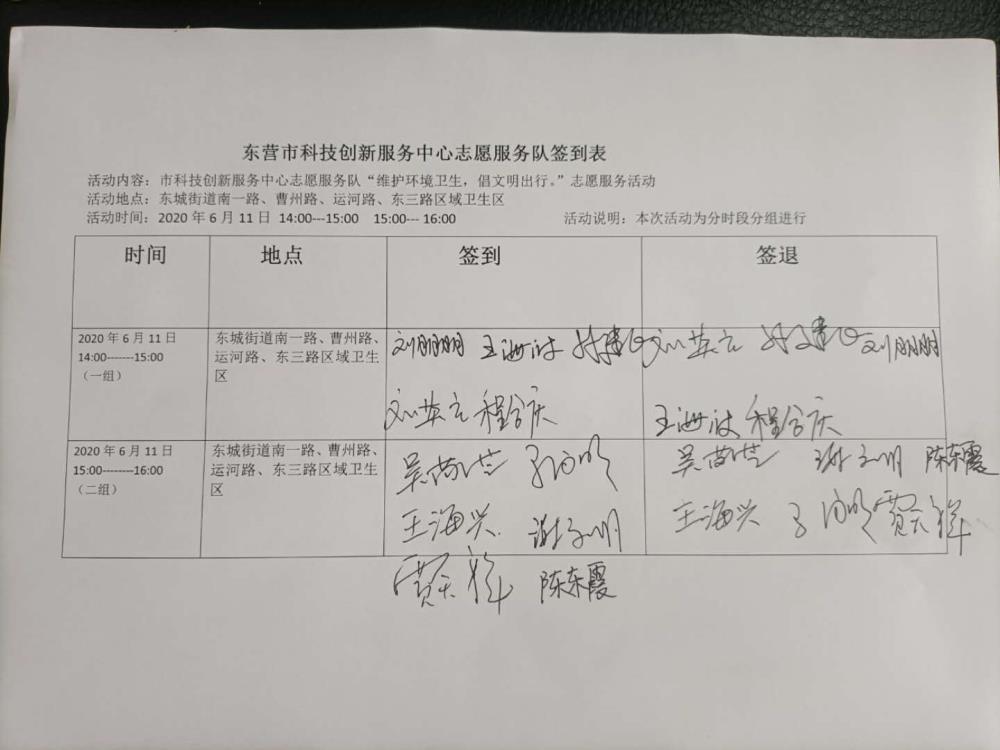 东营市科技创新服务中心志愿服务队签到表
活动内容：市科技创新服务中心志愿服务队“维护环境卫生，倡文明出行。”志愿服务活动
活动地点：东城街道南一路、曹州路、运河路、东三路区域卫生区
活动时间：2020 年 6 月 11 日 14:00---15:00 15:00--- 16:00 活动说明：本次活动为分时段分组进行
时间 地点 签到 签退
2020 年 6 月 11 日
14:00-------15:00
（一组）
东城街道南一路、曹州路、
运河路、东三路区域卫生
区
刘朋朋
刘英立 程合庆
刘英立 刘朋朋
程合庆
2020 年 6 月 11 日
15:00--------16:00
（二组）
东城街道南一路、曹州路、
运河路、东三路区域卫生
区
王海兴 谢子明
陈东霞
陈东霞
王海兴